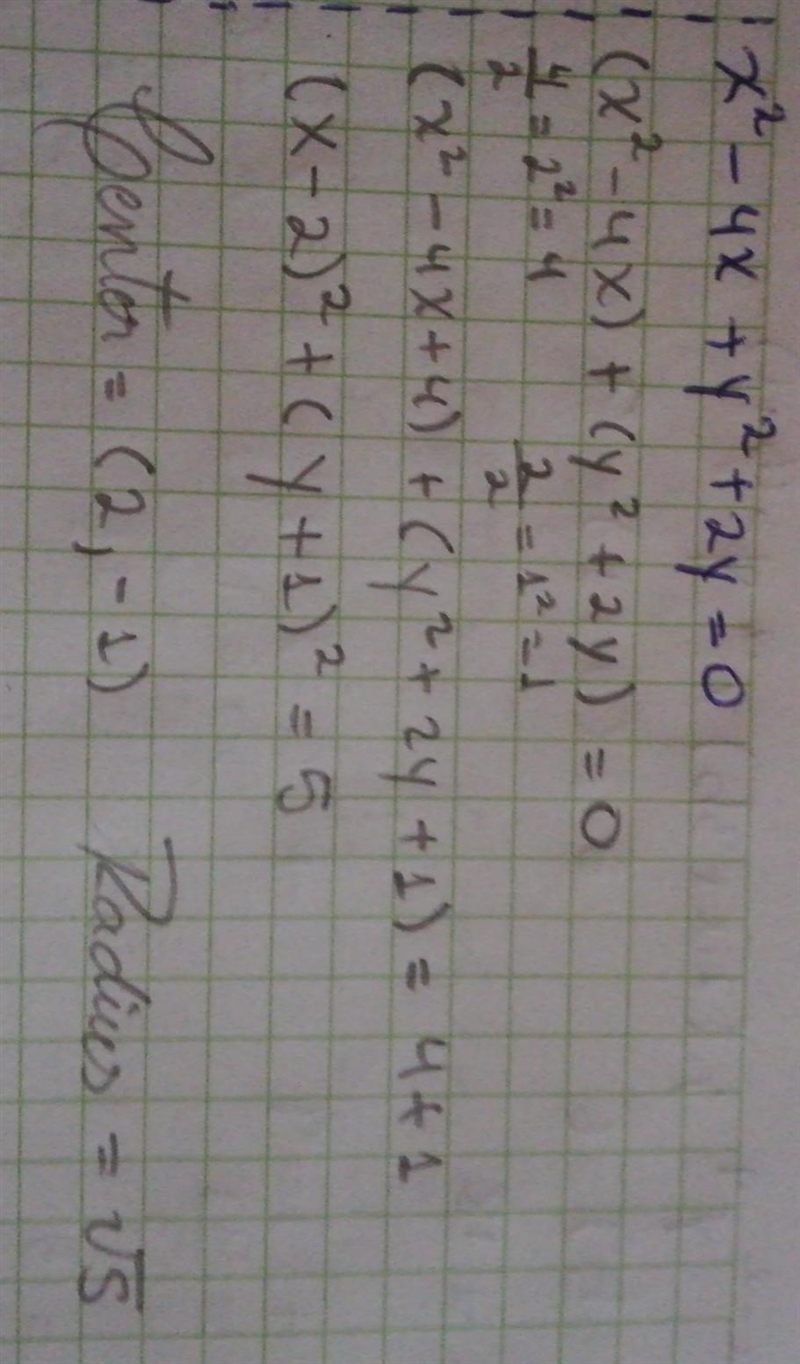 x² - 4x + y² + 2y = 0
(x² - 4x) + (y² + 2y) = 0
4/2 = 2² = 4 2/2 = 1² = 1
(x² - 4x + 4) + (y² + 2y + 1) = 4 + 1
(x - 2)² + (y + 1)² = 5
Center = (2, -1) Radius = √5